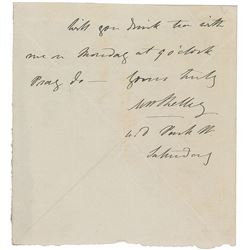 Will you drink tea with
me on Monday at 9 o'clock
Pray do — Yours truly
MWShelley
Park St
Saturday